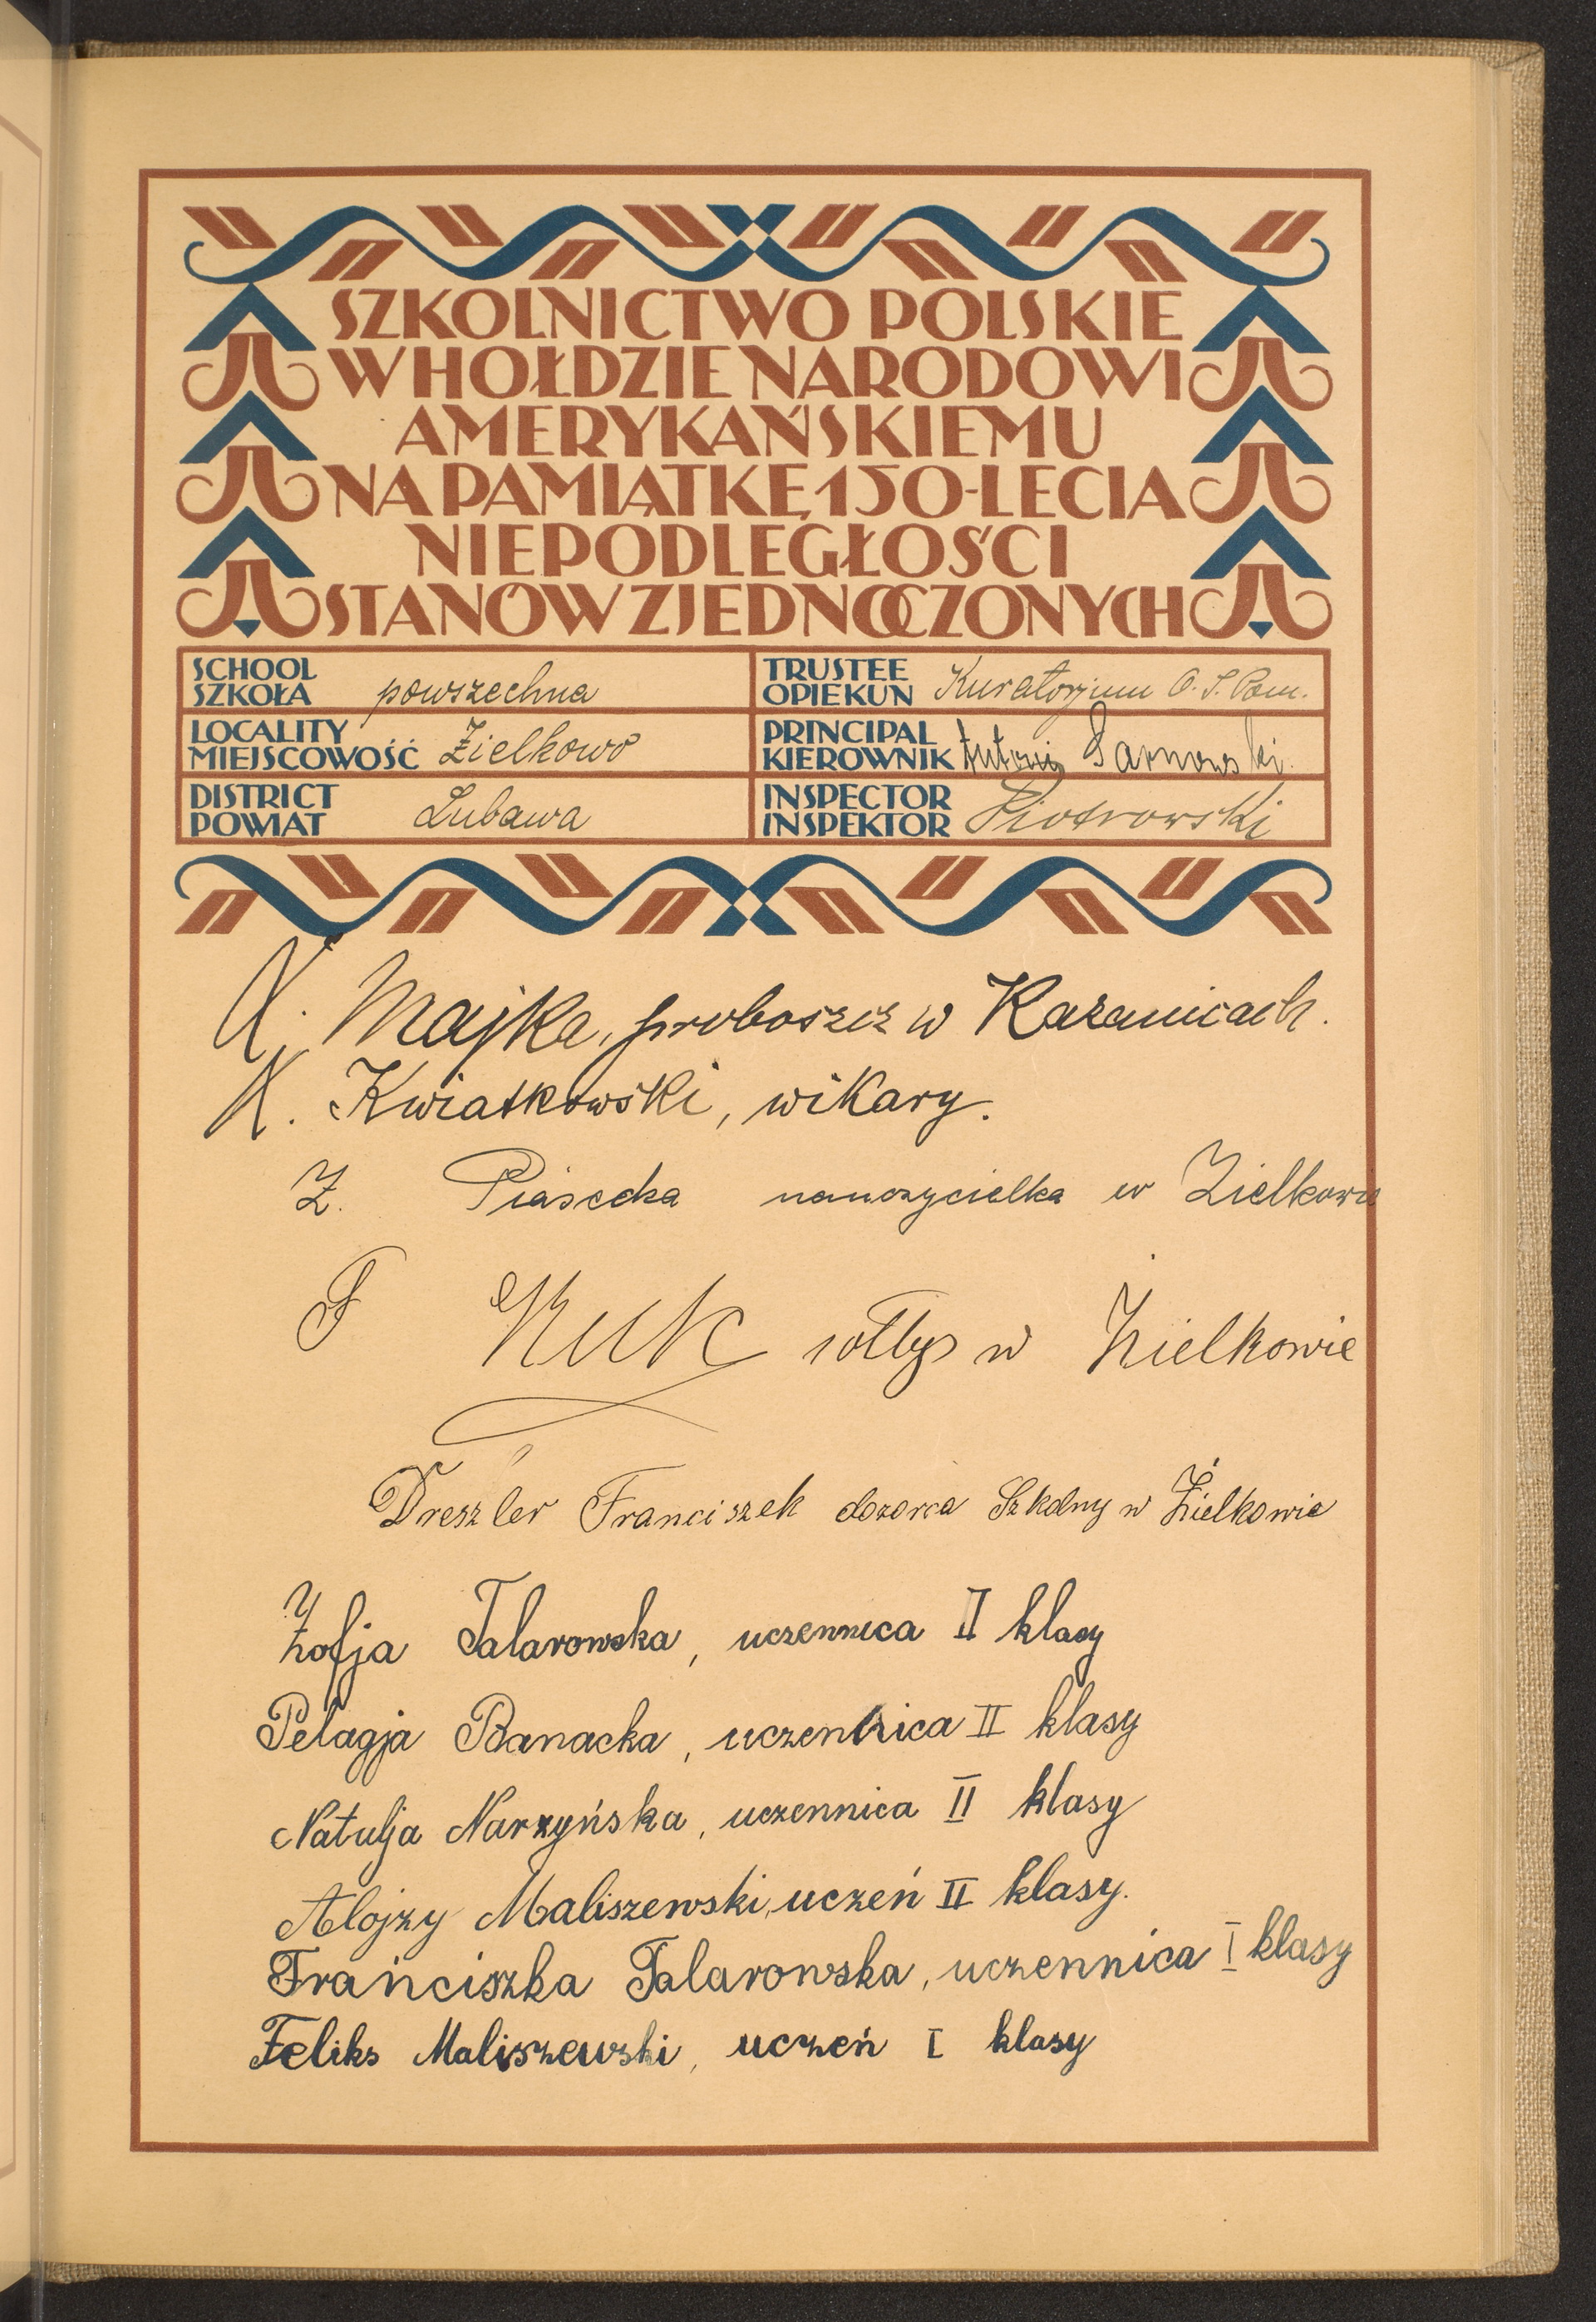 SZKOLNICTWO POLSKIE
W HOŁDZIE NARODOWI
AMERYKAŃSKIEMU
NA PAMIĄTKĘ 150-LECIA
NIEPODLEGŁOŚCI
STANÓW ZJEDNOCZONYCH
SCHOOL
SZKOŁA powszechna
TRUSTEE
OPIEKUN Kuratorjum O. S. Pom.
LOCALITY
MIEJSCOWOŚĆ Zielkowo
PRINCIPAL
KIEROWNIK Antoni Sarnowski.
DISTRICT
POWIAT Lubawa
INSPECTOR
INSPEKTOR Piotrowski
X. Majka, proboszcz w Kazanicach.
X. Kwiatkowski, wikary.
Z. Piasecka nauczycielka w Zielkowie
F Kuk sołtys w Zielkowie
Dreszler Franciszek dozorca Szkolny w Zielkowie
Zofja Talarowska, uczennica II klasy
Pelagja Banacka, uczennica II klasy
Natulja Narzyńska, uczennica II klasy
Alojzy Maliszewski, uczeń II klasy.
Franciszka Talarowska, uczennica I klasy
Feliks Maliszewski, uczeń I klasy